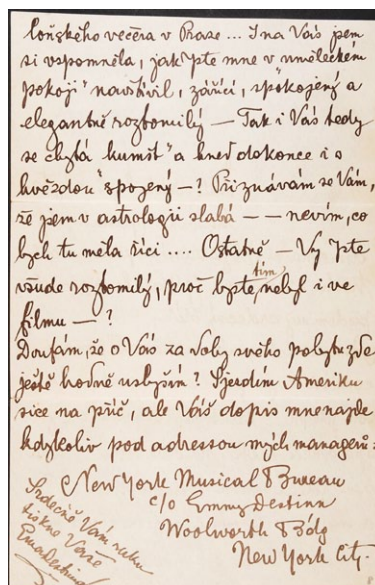 loňského večera v Praze ... I na Vás jsem
si vzpomněla, jak jste mne v uměleckém
pokoji" navštívil, zářící, spokojený a
elegantně roztomilý — Tak i Vás tedy
se chytá kumšt" a hned dokonce i s
hvězdou" spojený —? Přiznávám se Vám,
že jsem v astrologii slabá — — nevím, co
bych tu měla říci .... Ostatně — Vy jste
všude roztomilý, proč byste tím nebyl i ve
filmu — ?
Doufám, že o Vás za doby svého pobytu zde
ještě hodně uslyším? Sjezdím Ameriku
sice na příč, ale Váš dopis mne najde
kdykoliv pod adressou mých managerů:
New York Musical Bureau
c/o Emmy Destinn
Woolworth Bdg
New York City.
Srdečně Vám ruku
tiskne Vaše
Ema Destinnová